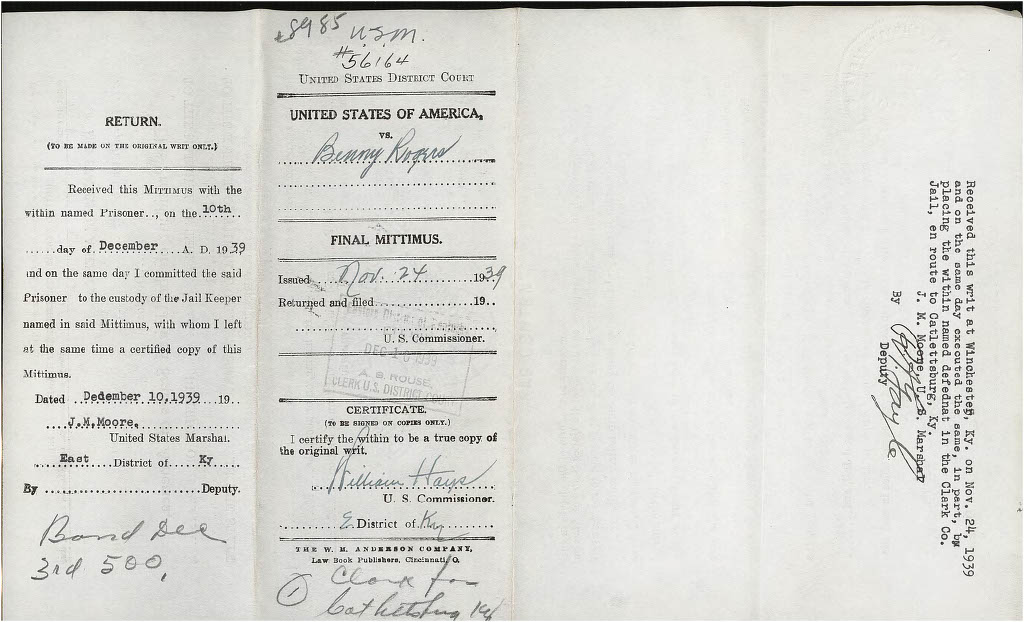 RETURN.
(TO BE MADE ON THE ORIGINAL WRIT ONLY.)
Received this MITTIMUS with the
within named Prisoner.., on the 10th
day of December A. D. 1939
and on the same day I committed the said
Prisoner to the custody of the Jail Keeper
named in said Mittimus, with whom I left
at the same time a certified copy of this
Mittimus.
Dated Dedember 10,1939 19..
J.M.Moore,
United States Marshal.
East District of Ky
By Deputy.
Bond Dec
3rd 500,
8985 U.S.M.
#56164
UNITED STATES DISTRICT COURT
UNITED STATES OF AMERICA,
vs.
Benny Rogers
FINAL MITTIMUS.
Issued Nov. 24 1939
Returned and filed 19..
U. S. Commissioner.
DEC 1 1939
A. B. ROUSE,
CLERK U.S. DISTRICT
CERTIFICATE.
(TO BE SIGNED ON COPIES ONLY.)
I certify the within to be a true copy of
the original writ.
William Hays
U. S. Commissioner.
E. District of Ky
THE W. H. ANDERSON COMPANY,
Law Book Publishers, Cincinnati, O.
1 Clark for
Catlettsburg Ky
Received this writ at Winchester, Ky. on Nov. 24, 1939
and on the same day executed the same, in part, by
placing the within named defednat in the Clark Co.
Jail, en route to Catlettsburg, Ky.
J. M. Moore, U. S. Marshal
By
Deputy